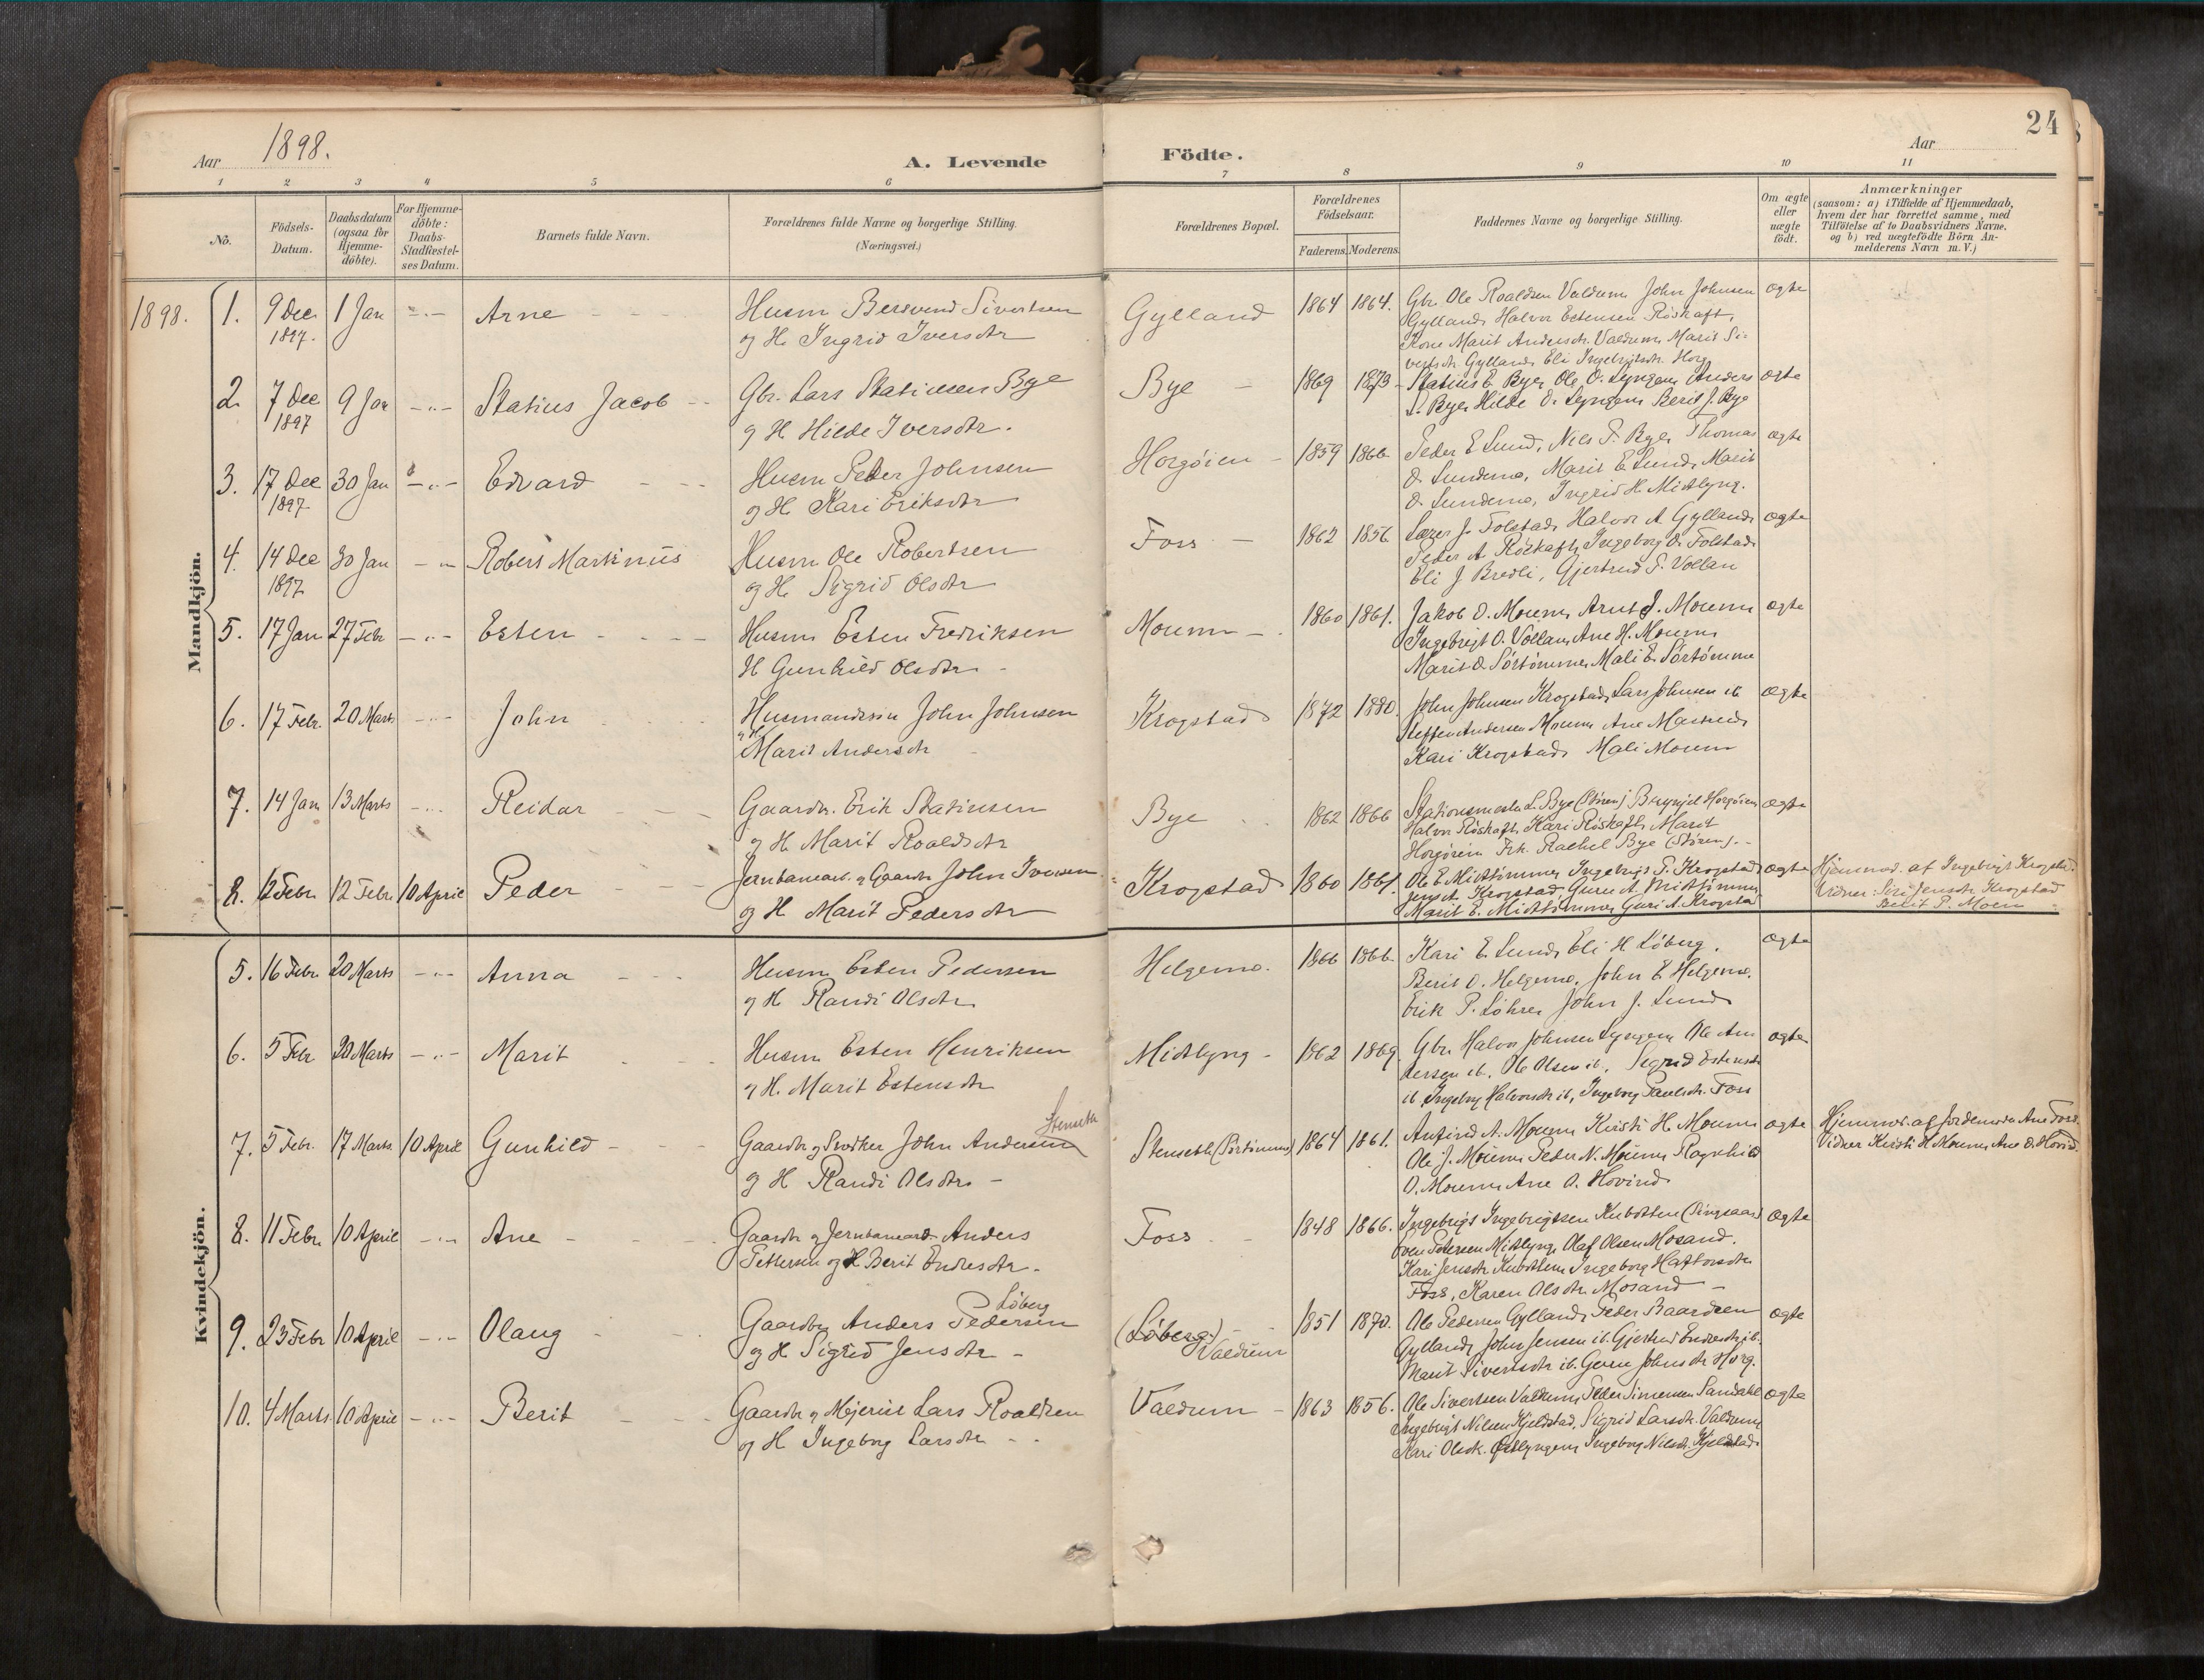 24
Aar 1898.
A. Levende
Födte.
Aar
1 2 3 4 5 6 7 8 9 10 11
No.
Födsels-
Datum.
Daabsdatum
(ogsaa for
Hjemme-
döbte).
For Hjemme-
döbte:
Daabs-
Stadfæstel-
ses Datum.
Barnets fulde Navn.
Forældrenes fulde Navne og borgerlige Stilling.
(Næringsvei.)
Forældrenes Bopæl.
Forældrenes
Födselsaar.
Faderens. Moderens.
Faddernes Navne og borgerlige Stilling.
Om ægte
eller
uægte
födt.
Anmærkninger
(saasom: a) i Tilfælde af Hjemmedaab,
hvem der har forrettet samme, med
Tilföielse af to Daabsvidners Navne,
og b) ved uægtefödte Börn An-
melderens Navn m. V.)
Mandkjön.
1898. 1. 9 Dec 1897. 1 Jan -"- Arne
Husm Bersvend Sivertsen
og H. Ingrid Iversdtr
Gylland 1864 1864.
Gbr. Ole Roaldsen Valdum, John Johnsen
Gylland, Halvor Estensen Röskaft,
Kone Marit Andersdr. Valdum, Marit Si-
vertsdr Gylland, Eli Ingebrigtsdr. Horg
ægte
2. 7 Dec 1897 9 Jan -"- Statius Jacob
Gbr. Lars Statiussen Bye
og H Hilde Iversdtr.
Bye 1869 1873
Statius E. Bye, Ole O. Lyngen, Anders
L. Bye, Hilde O. Lyngen, Berit J. Bye
ægte
3. 17 Dec 1897 30 Jan -"- Edvard
Husm Peder Johnsen
og H. Kari Eriksdtr
Horgöien 1859 1866
Peder E Lund, Nils P. Bye, Thomas
O. Lundemo, Marit E. Lund, Marit
O. Lundemo, Ingrid H. Midtlyng.
ægte
4. 14 Dec 1897 30 Jan -"- Robert Martinus
Husm Ole Robertsen
og H. Sigrid Olsdtr
Foss 1862 1856
J. Folstad, Halvor A. Gylland,
Peder A Röskaft, Ingeborg O. Folstad
Eli J Bredli, Gjertrud P. Vollan
ægte
5. 17 Jan 27 Febr -"- Esten
Husm Esten Fredriksen
H Gunhild Olsdtr
Moum 1860 1861.
Jakob O. Moum, Arnt J. Moum
Ingebrigt O. Vollan, Ane H. Moum
Marit O Sörtömme, Mali E. Sörtömme
ægte
6. 17 Febr. 20 Marts -"- John
Husmandssn John Johnsen
og H
Marit Andersdtr
Krogstad 1872 1880.
John Johnsen Krogstad, Lars Johnsen ib.
Steffen Andersen Moum, Ane
Kari Krogstad, Mali Moum
ægte
7. 14 Jan 13 Marts -"- Reidar
Gaardbr. Erik Statiusen
og H. Marit Roaldsdtr
Bye 1862 1866
Stationsmester L. Bye (Stören) Horgöien
Halvor Röskaft, Kari Röskaft, Marit
Horgöien Frk. Rachel Bye (Stören).
ægte
8. 12 Febr. 12 Febr. 10 April Peder
Jernbanearb. og Gaardbr John Iversen
og H Marit Pedersdtr
Krogstad 1860 1861.
Ole E Midttömme, Ingebrigt P. Krogstad
Jens A. Krogstad, Guru A. Midttömme
Marit E. Midttömme, Guri A. Krogstad
ægte
Hjemmed. af Ingebrigt Krogstad.
Vidner: Jensdtr Krogstad
Berit P. Moen
Kvindekjön.
5. 16 Febr. 20 Marts -"- Anna
Husm Esten Pedersen
og H Randi Olsdtr
Helgemo. 1866 1866.
Kari E Lund, Eli H Löberg.
Berit O. Helgemo, John E Helgemo.
Erik P. Löhre, John J. Lund
ægte
6. 5 Febr 20 Marts -"- Marit
Husm Esten Henriksen
og H. Marit Estensdtr
Midtlyng 1862 1869.
Gbr. Halvor Johnsen Lyngen, Ole An-
dersen ib. Ole Olsen ib. Sigrid Estensdtr
ib, Ingebrg Halvorsdtr ib, Ingeborg Paulsdtr. Foss
ægte
7. 5 Febr. 17 Marts. 10 April Gunhild
Stenseth
Gaardbr og Snedker John Andersen
og H Randi Olsdtr.
Stenseth (Sörtömme) 1864 1861.
Anfind A. Moum, Kirsti H. Moum
Ole J. Moum, Peder N. Moum, Ragnhild
O. Moum, Ane O. Hovind
ægte
Hjemmed. af Jordemoder Ane Foss.
Vidner Kirsti H Moum, Ane O. Hovind.
8. 11 Febr. 10 April -"- Ane
Gaardbr og Jernbanearb Anders
Pettersen og H Berit Endresdtr.
Foss 1848 1866.
Ingebrigt Ingebrigtsen Kubotten (Ringsaas)
Sven Petersen Midtlyng, Olaf Olsen Mosand.
Kari Jensdtr Kubotten, Ingeborg Haftorsdtr
Foss, Karen Olsdtr Mosand
ægte
9. 23 Febr 10 April -"- Olaug
Löberg
Gaardbr Anders Pedersen
og H Sigrid Jensdtr
(Löberg) 1851 1870.
Valdum
Ole Pedersen Gylland, Peder Baardsen
Gylland, John Jensen ib. Gjertrud Endresdtr ib.
Marit Sivertsdtr ib. Guru Johnsdtr Horg.
ægte
10. 4 Marts. 10 April -"- Berit
Gaardbr og Mejerist Lars Roaldsen
og H Ingeborg Larsdtr
Valdum 1863 1856.
Ole Sivertsen Valdum, Peder Simensen Sandahl
Ingebrigt Nilsen Kjeldstad, Sigrid Larsdtr. Valdum
Kari Olsdtr. Östlyngen, Ingeborg Nilsdtr. Kjeldstad
ægte